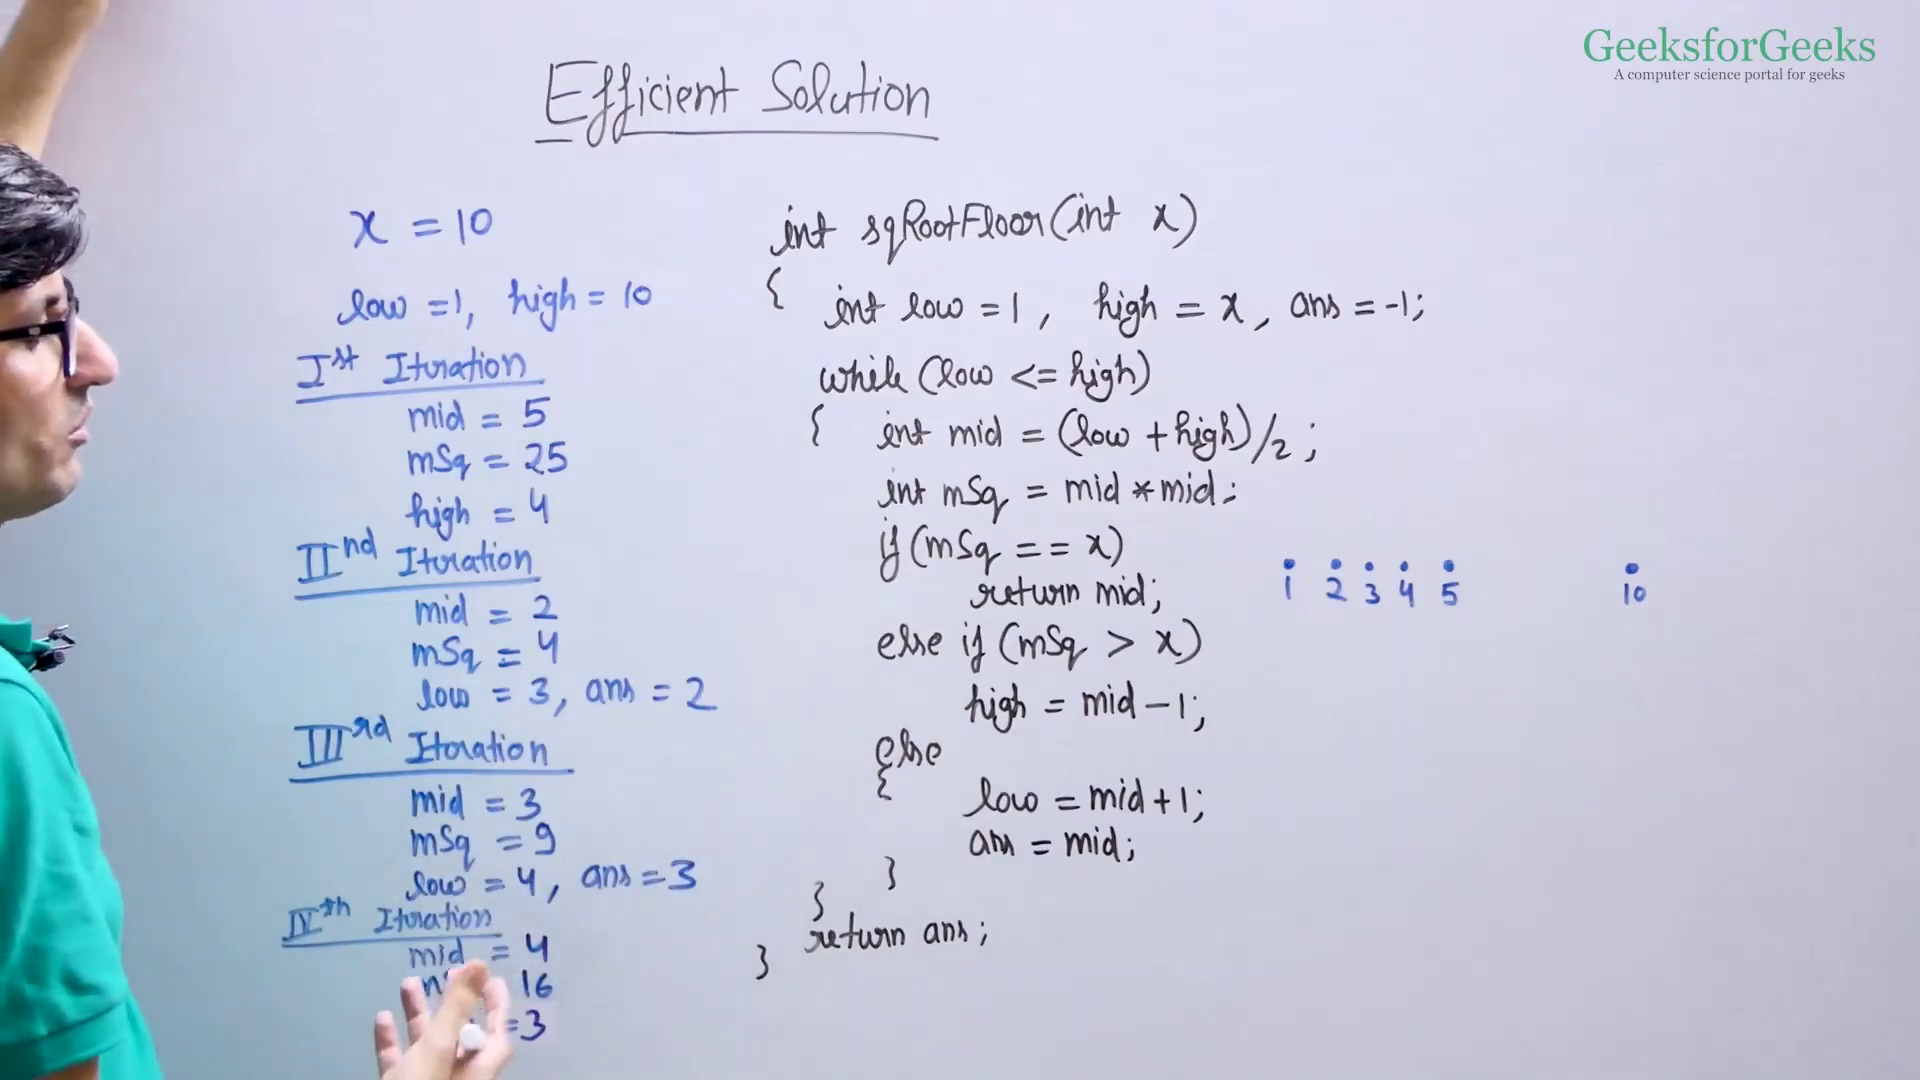 GeeksforGeeks
A computer science portal for geeks
Efficient Solution
x = 10
low = 1, high = 10
Ist Iteration
mid = 5
mSq = 25
high = 4
IInd Iteration
mid = 2
mSq = 4
low = 3, ans = 2
IIIrd Iteration
mid = 3
mSq = 9
low = 4, ans = 3
IVth Iteration
mid = 4
16
= 3
int sqRootFloor(int x)
{ int low = 1, high = x, ans = -1;
while (low <= high)
{ int mid = (low + high)/2;
int mSq = mid * mid;
if (mSq == x)
return mid;
else if (mSq > x)
high = mid - 1;
else
{ low = mid + 1;
ans = mid;
}
}
return ans;
}
1 2 3 4 5 10